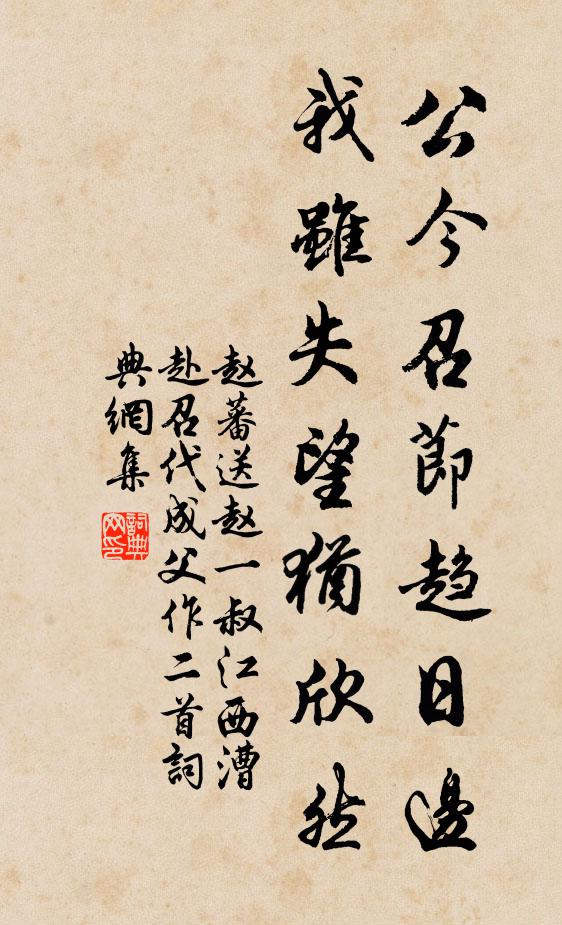 公今召節趨日邊
我雖失望猶欣然
赵蕃送赵一叔江西漕
赴召代成父作二首詞
典網集
詞典网印